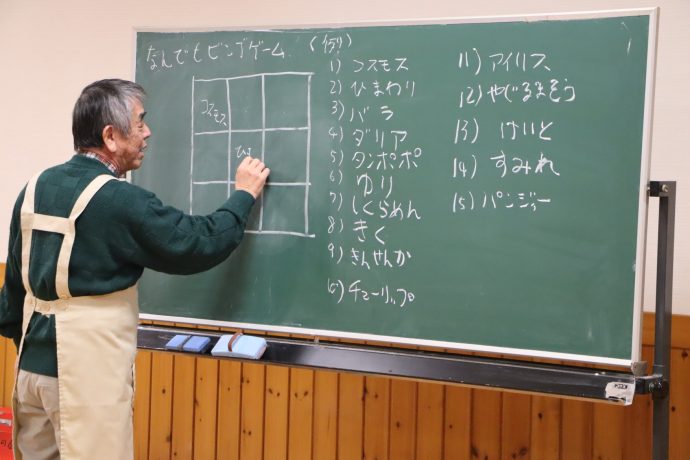 なんでもビンゴゲーム
(例)
コスモス
ひま
1) コスモス
2) ひまわり
3) バラ
4) ダリア
5) タンポポ
6) ゆり
7) しくらめん
8) きく
9) きんせんか
10) チューリップ
11) アイリス
12) やぐるまそう
13) けいと
14) すみれ
15) パンジー